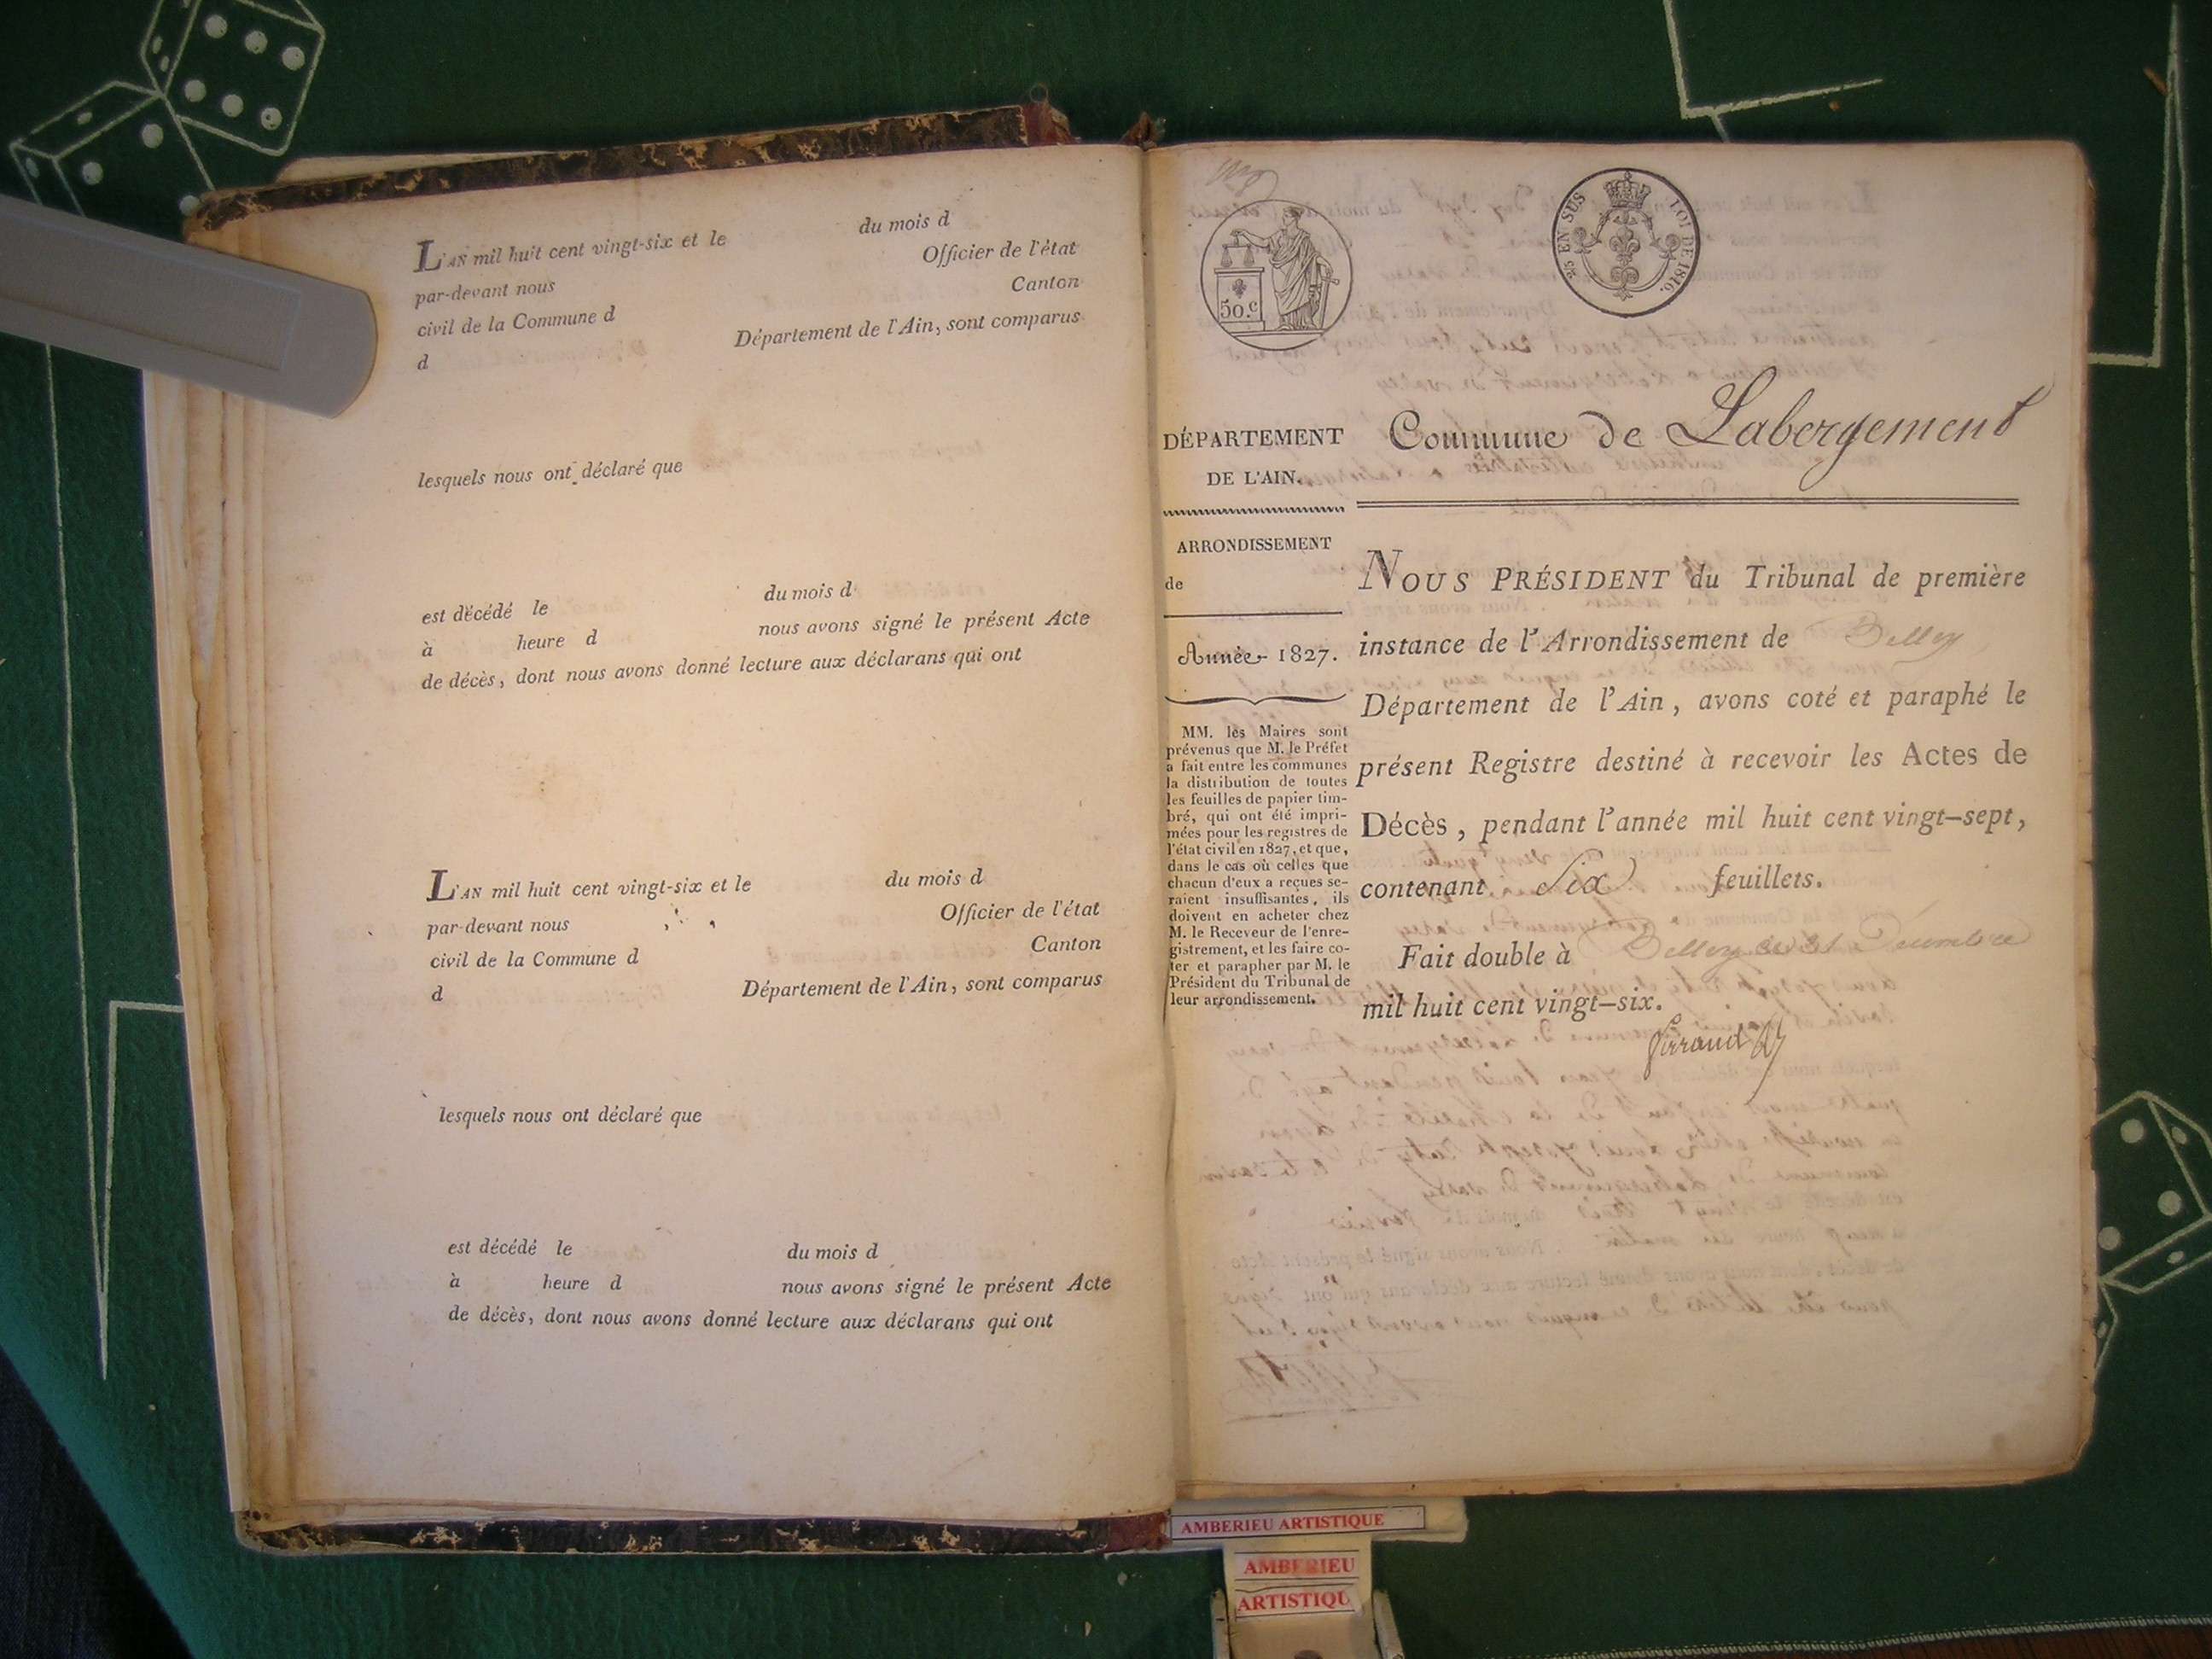 L'AN mil huit cent vingt-six et le du mois d
par-devant nous Officier de l'état
civil de la Commune d Canton
d Département de l'Ain, sont comparus
lesquels nous ont déclaré que
est décédé le du mois d
à heure d nous avons signé le présent Acte
de décès, dont nous avons donné lecture aux déclarans qui ont
L'AN mil huit cent vingt-six et le du mois d
par-devant nous Officier de l'état
civil de la Commune d Canton
d Département de l'Ain, sont comparus
lesquels nous ont déclaré que
est décédé le du mois d
à heure d nous avons signé le présent Acte
de décès, dont nous avons donné lecture aux déclarans qui ont
50.c
25 EN SUS LOI DE 1816.
DÉPARTEMENT
DE L'AIN.
ARRONDISSEMENT
de
Année 1827.
MM. les Maires sont
prévenus que M. le Préfet
a fait entre les communes
la distribution de toutes
les feuilles de papier tim-
bré, qui ont été impri-
mées pour les registres de
l'état civil en 1827, et que,
dans le cas où celles que
chacun d'eux a reçues se-
raient insuffisantes, ils
doivent en acheter chez
M. le Receveur de l'enre-
gistrement, et les faire co-
ter et parapher par M. le
Président du Tribunal de
leur arrondissement.
Commune de Labergement
NOUS PRÉSIDENT du Tribunal de première
instance de l'Arrondissement de Belley
Département de l'Ain, avons coté et paraphé le
présent Registre destiné à recevoir les Actes de
Décès, pendant l'année mil huit cent vingt-sept,
contenant Six feuillets.
Fait double à Belley le 31 Décembre
mil huit cent vingt-six.
AMBERIEU ARTISTIQUE
AMBERIEU
ARTISTIQU